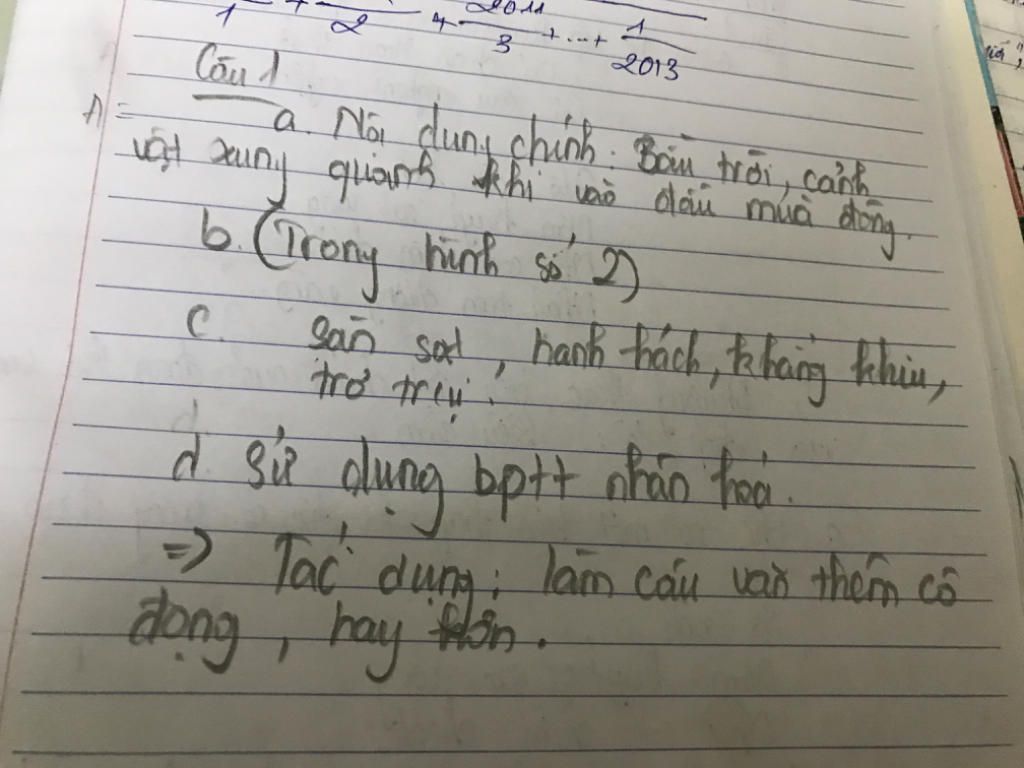 1 + 2 + 2011/3 + ... + 1/2013
Câu 1
A =
a. Nội dung chính: Bầu trời, cảnh
vật xung quanh khi vào đầu mùa đông.
b. (Trong hình số 2)
c. săn sạt, hanh hách, khẳng khiu,
trơ trụi.
d. Sử dụng bptt nhân hóa.
=> Tác dụng: làm câu văn thêm cô
đọng, hay hơn.